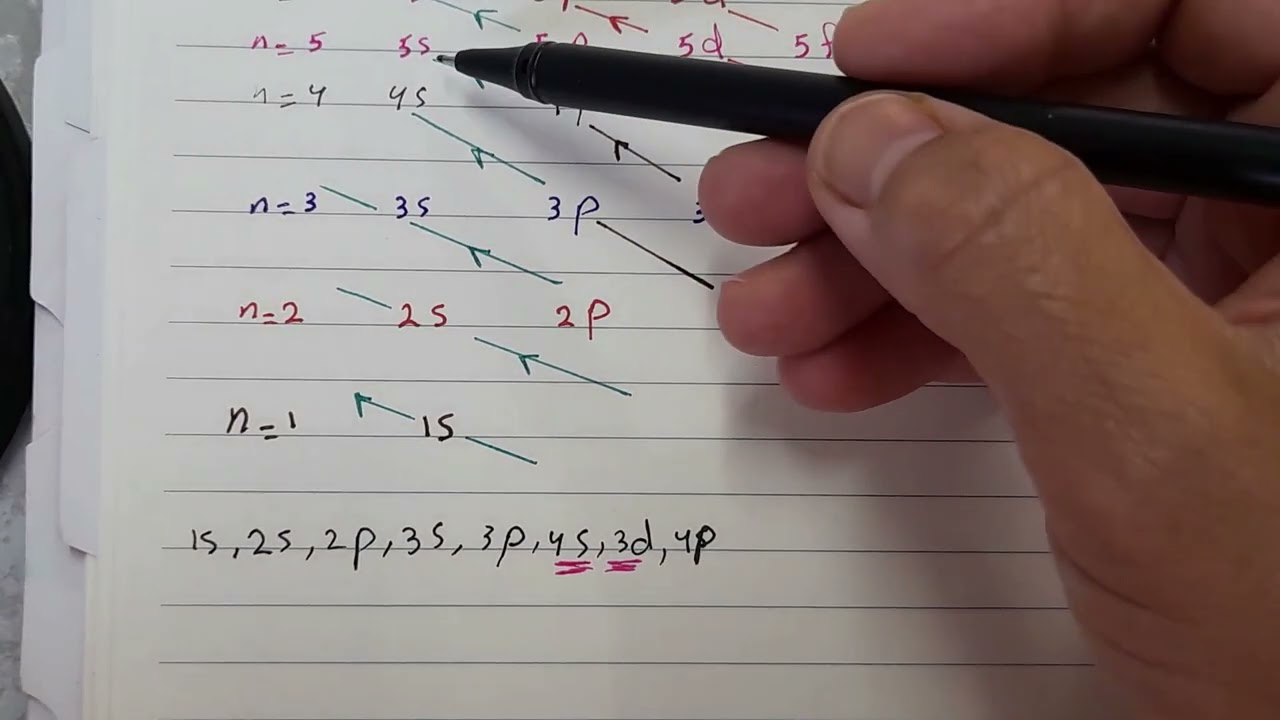 n=5 5s 5d 5f
n=4 4s
n=3 3s 3p 3
n=2 2s 2p
n=1 1s
1s, 2s, 2p, 3s, 3p, 4s, 3d, 4p